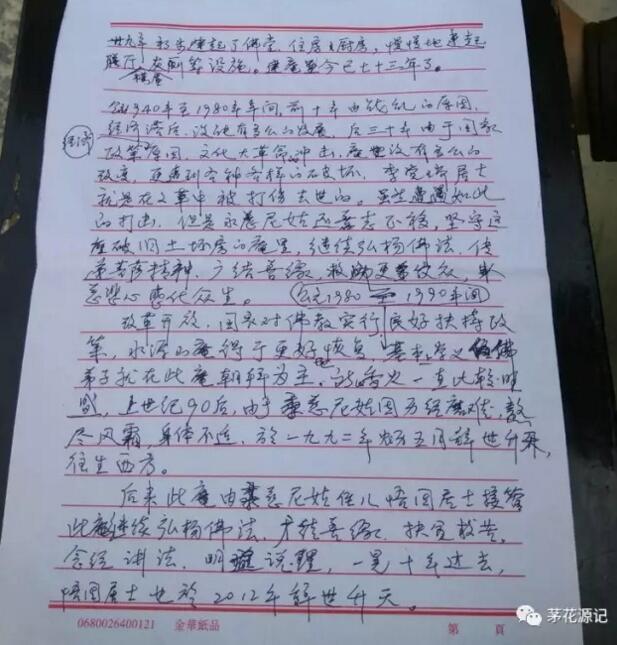 卅九年初步建起了佛堂、住房、厨房，慢慢地来起
膳厅、衣刺等设施。建庵至今已七十三年了。
楼屋
公元1940年至1980年年间，前十年由战乱的原因，
经济滞后，没能有多么的发展，后三十年由于国家
经济
政策原因，文化大革命冲击，庵堂没有多么的
改变，更遭到各种各样的破坏。李堂 居士
就是在文革中被打伤去世的。虽然遭遇如此
的打击，但是永慈尼姑还矢志不移，坚守这
座破旧土坯房的庵里，继续弘扬佛法，传
承菩萨精神，广结善缘，救 众，以
慈悲心感化众生。
公元1980 — 1990年间
改革开放，国家对佛教实行良好扶持政
策，水 庵得于更好恢复，基本上 佛
弟子就在此庵朝拜为主，香火一直比较旺
盛，上世纪90后，由于永慈尼姑因历经磨难，熬
尽风霜，身体不适，於一九九二年 五月辞世升天，
往生西方。
后来此庵由永慈尼姑侄儿悟国居士接管
此庵继续弘扬佛法，广结善缘，扶贫救苦，
念经讲法，明 说理，一晃十年过去，
悟国居士也於2012年辞世升天。
0680026400121 金華紙品 第 頁
茅花源记